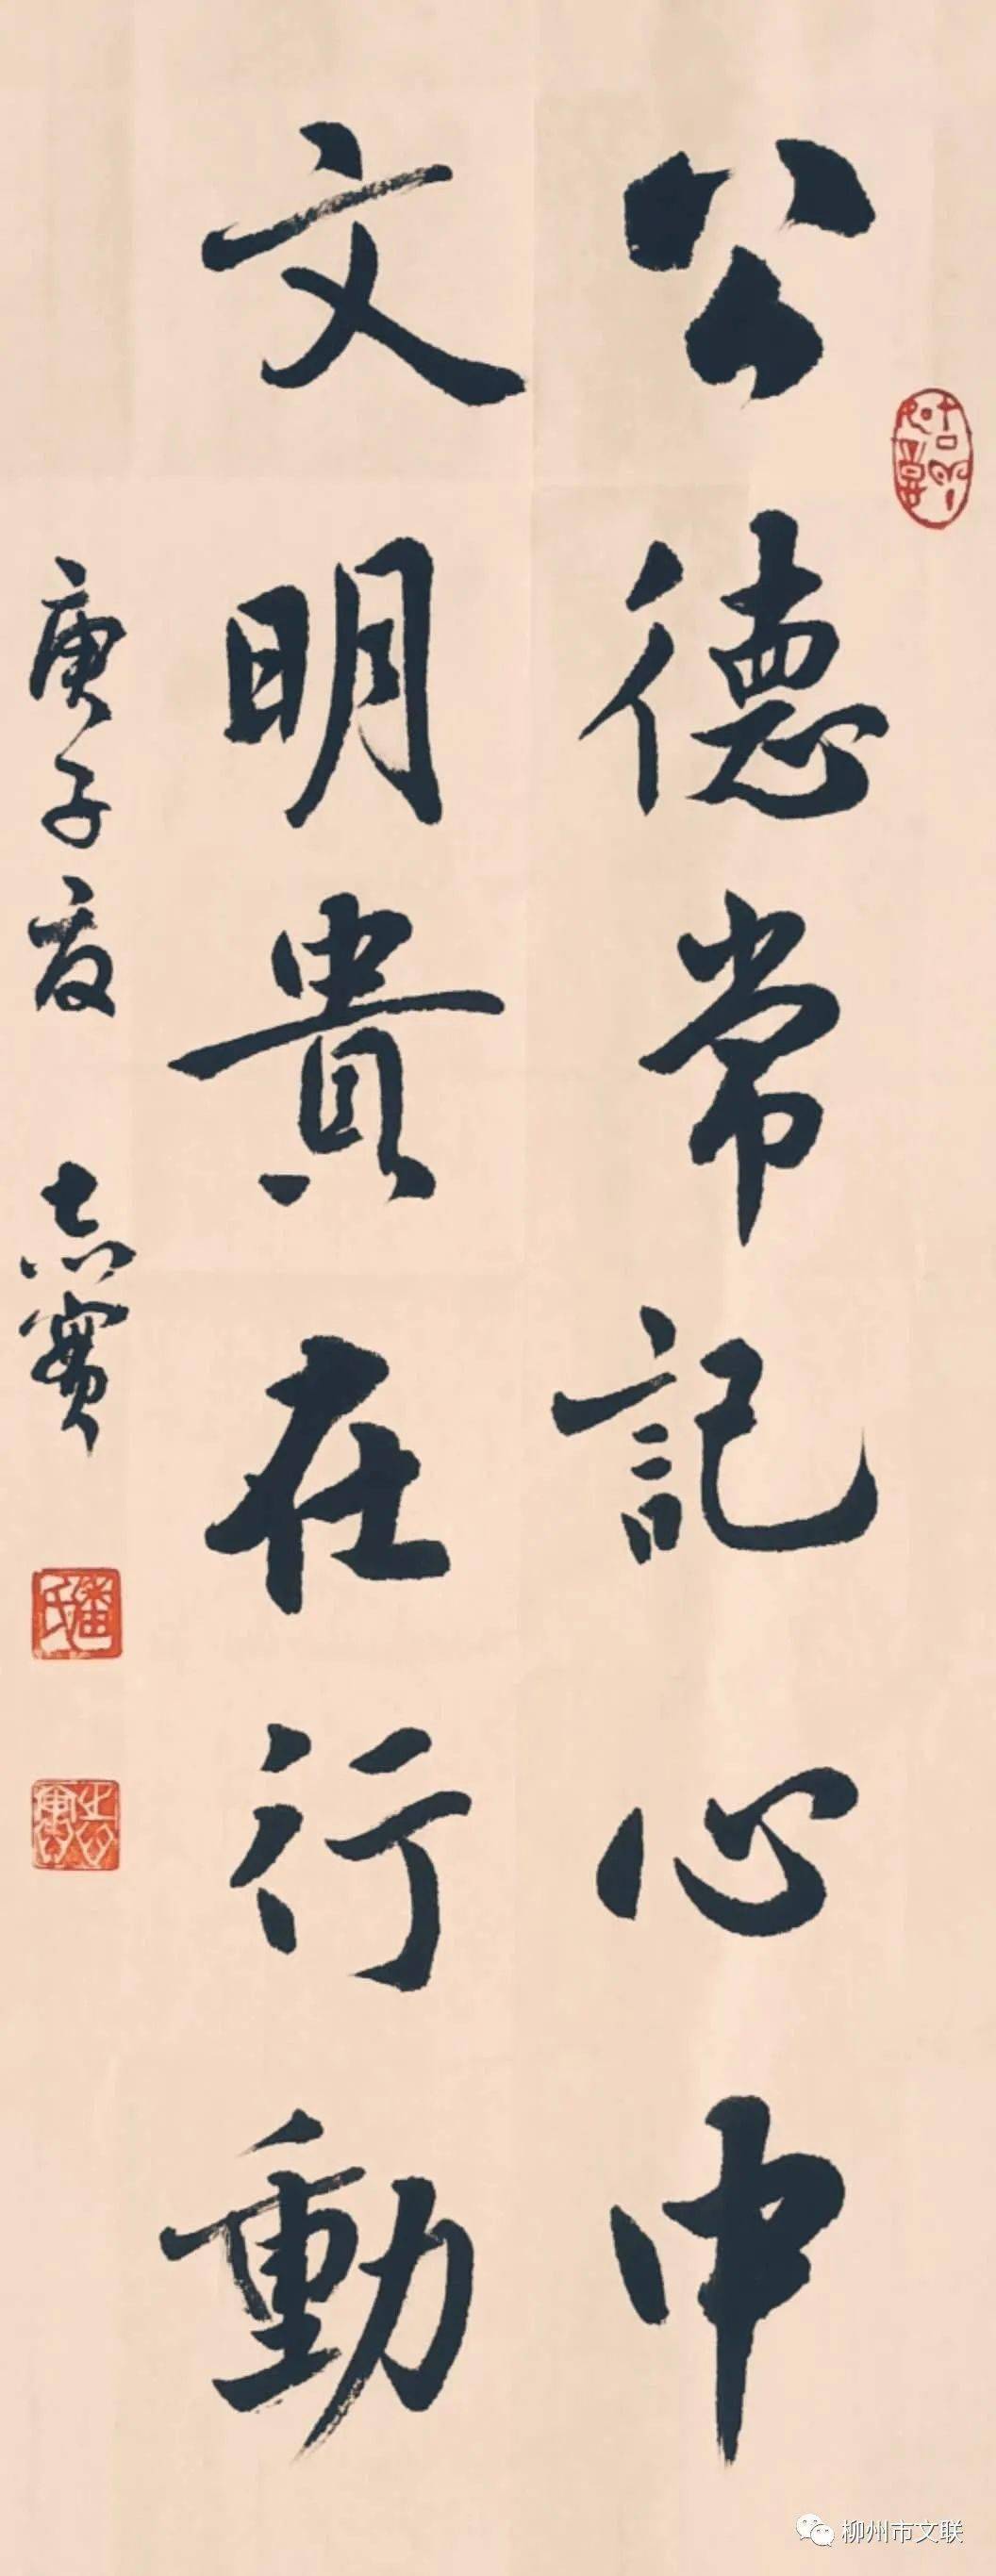 公德常記心中
文明貴在行動
庚子夏 志實
潘氏
柳州市文联